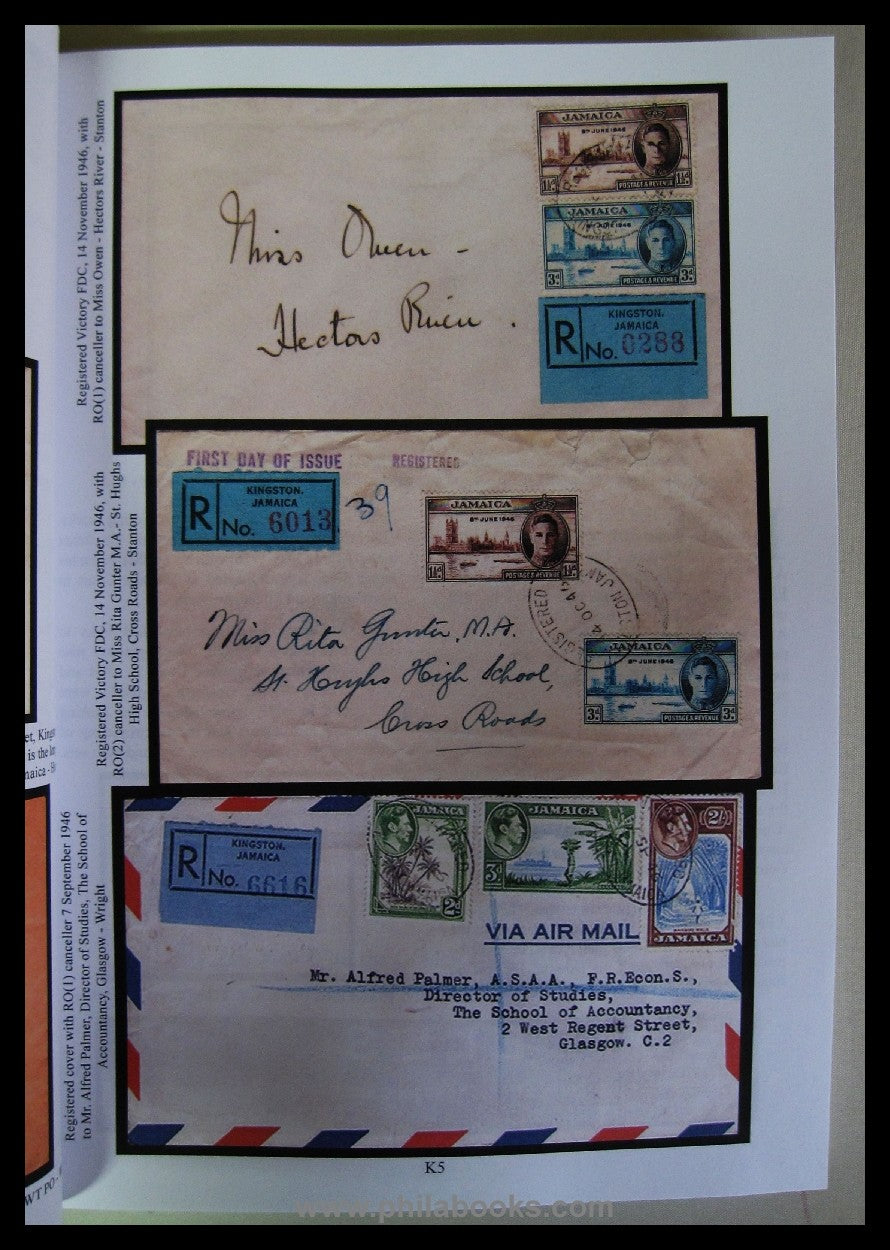 Registered Victory FDC, 14 November 1946, with
RO(1) canceller to Miss Owen - Hectors River - Stanton
JAMAICA
8TH JUNE 1946
1½d 1½d
POSTAGE & REVENUE
JAMAICA
8TH JUNE 1946
3d 3d
POSTAGE & REVENUE
Miss Owen -
Hectors River.
R
KINGSTON.
JAMAICA
No. 0288
Registered Victory FDC, 14 November 1946, with
RO(2) canceller to Miss Rita Gunter M.A.- St. Hughs
High School, Cross Roads - Stanton
FIRST DAY OF ISSUE REGISTERED
R
KINGSTON.
JAMAICA
No. 6013
39
JAMAICA
8TH JUNE 1946
1½d 1½d
POSTAGE & REVENUE
Miss Rita Gunter, M.A.
St. Hughs High School,
Cross Roads
JAMAICA
8TH JUNE 1946
3d 3d
POSTAGE & REVENUE
Registered cover with RO(1) canceller 7 September 1946
to Mr. Alfred Palmer, Director of Studies, The School of
Accountancy, Glasgow - Wright
R
KINGSTON.
JAMAICA
No. 6616
JAMAICA
2d
JAMAICA
3d
2/-
JAMAICA
VIA AIR MAIL
Mr. Alfred Palmer, A.S.A.A., F.R.Econ.S.,
Director of Studies,
The School of Accountancy,
2 West Regent Street,
Glasgow. C.2
K5
www.philabooks.com